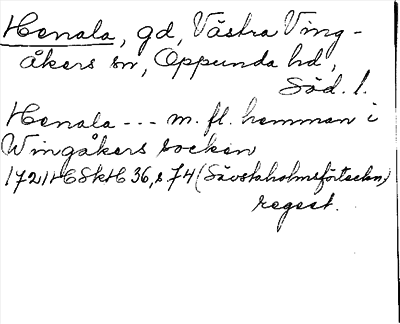 Henala, gd, Västra Ving-
åkers sn, Oppunda hd,
Söd. l.
Henala --- m. fl. hemman i
Wingåkers socken
1721 HSkH 36, s 74 (Sävstaholmsförteckn)
regest.